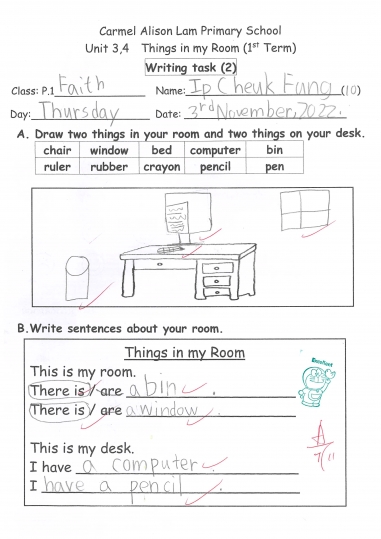 Carmel Alison Lam Primary School
Unit 3,4 Things in my Room (1st Term)
Writing task (2)
Class: P.1 Faith Name: Ip Cheuk Fung (10)
Day: Thursday Date: 3rd November, 2022.
A. Draw two things in your room and two things on your desk.
chair window bed computer bin
ruler rubber crayon pencil pen
B. Write sentences about your room.
Things in my Room
Excellent
This is my room.
There is / are a bin .
There is / are a window .
This is my desk.
A
I have a computer .
7/11
I have a pencil .